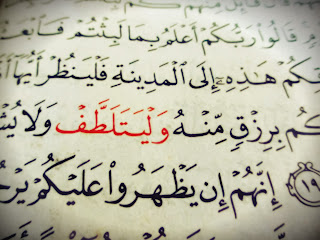 قَالُوا۟ رَبُّكُمْ أَعْلَمُ بِمَا لَبِثْتُمْ فَٱبْعَ
كُمْ هَـٰذِهِۦٓ إِلَى ٱلْمَدِينَةِ فَلْيَنظُرْ أَيُّهَآ
كُم بِرِزْقٍ مِّنْهُ وَلْيَتَلَطَّفْ وَلَا يُشْ
١٩ إِنَّهُمْ إِن يَظْهَرُوا۟ عَلَيْكُمْ يَرْجُ